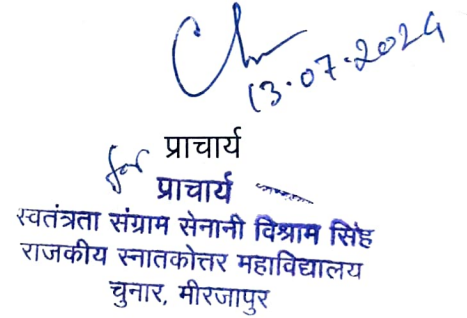 13.07.2024
प्राचार्य
for
प्राचार्य
स्वतंत्रता संग्राम सेनानी विश्राम सिंह
राजकीय स्नातकोत्तर महाविद्यालय
चुनार, मीरजापुर